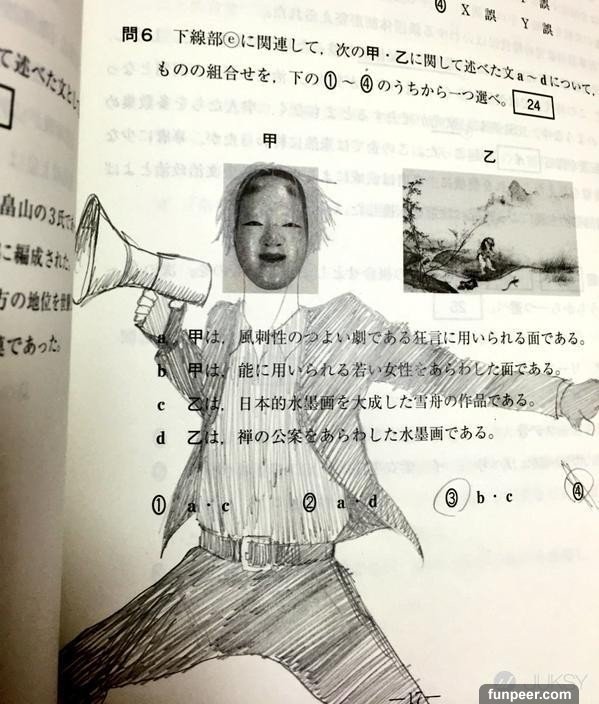 ④ X 誤 Y 誤
問6 下線部ⓔに関連して，次の甲・乙に関して述べた文a～dについて，
ものの組合せを，下の①～④のうちから一つ選べ。 24
甲
乙
て述べた文とし
畠山の3氏で
に編成された
方の地位を世襲
であった。
a 甲は，風刺性のつよい劇である狂言に用いられる面である。
b 甲は，能に用いられる若い女性をあらわした面である。
c 乙は，日本的水墨画を大成した雪舟の作品である。
d 乙は，禅の公案をあらわした水墨画である。
① a・c ② a・d ③ b・c ④
JUKSY
funpeer.com